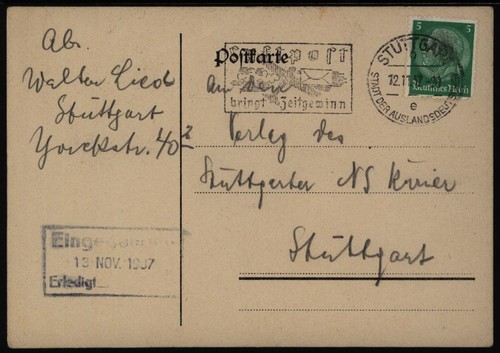 Abs.
Walter Lied
Stuttgart
Yorckstr. 40
Postkarte
Luftpost
bringt Zeitgewinn
STUTTGART
12.11.
e
STADT DER AUSLANDSDEUTSCHEN
5 5
Deutsches Reich
An den
Verlag des
Stuttgarter NS Kurier
Stuttgart
13 NOV. 1937
Erledigt